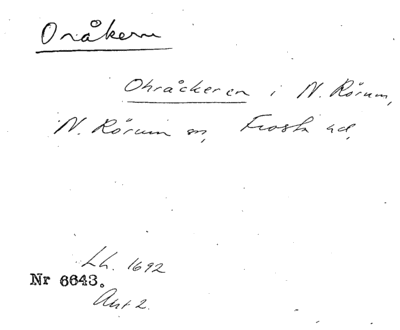 Oråkern
Ohråckeren i N. Rörum,
N. Rörum sn, Frosta hd.
Lh. 1692
Nr 6643.
Akt 2.